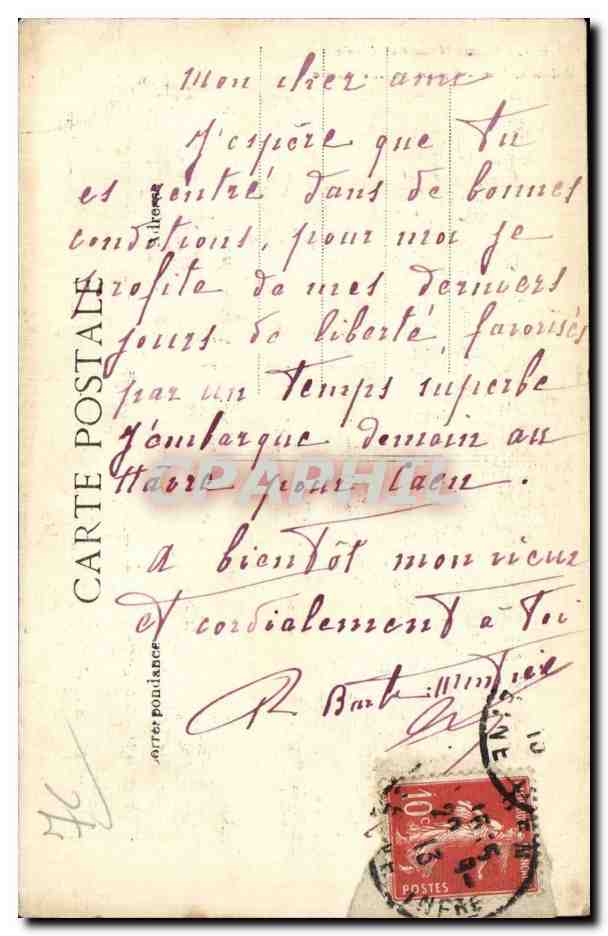 Mon cher ami
J'espère que tu
es rentré dans de bonnes
conditions, pour moi je
profite de mes derniers
jours de liberté, favorisés
par un temps superbe
J'embarque demain au
Hâvre pour Caen.
A bientôt mon vieux
et cordialement à toi
CARTE POSTALE
Correspondance
Adresse
CPAPHIL
10c
POSTES
INFRE
13
76